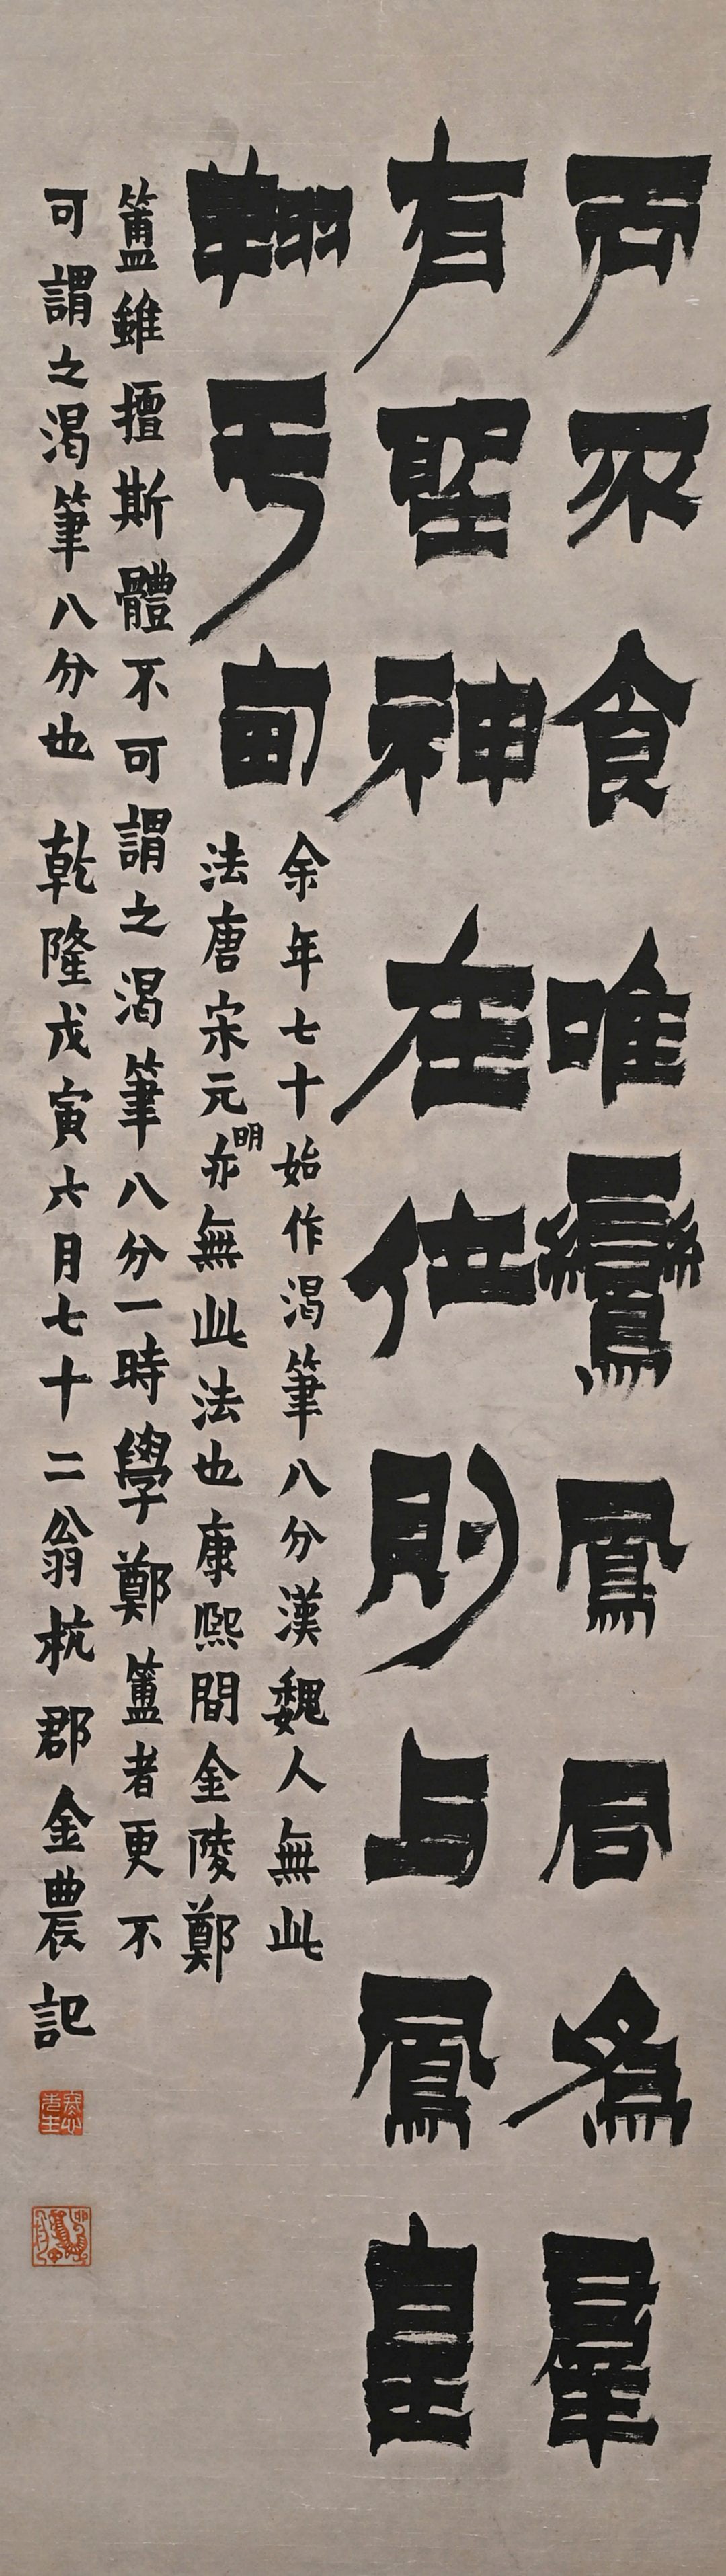 不食唯鸞鳳同爲羣
有聖神在位則与鳳皇
翔于甸
余年七十始作渴筆八分漢魏人無此
法唐宋元明亦無此法也康熙間金陵鄭
簠雖擅斯體不可謂之渴筆八分一時學鄭簠者更不
可謂之渴筆八分也 乾隆戊寅六月七十二翁杭郡金農記
冬心先生